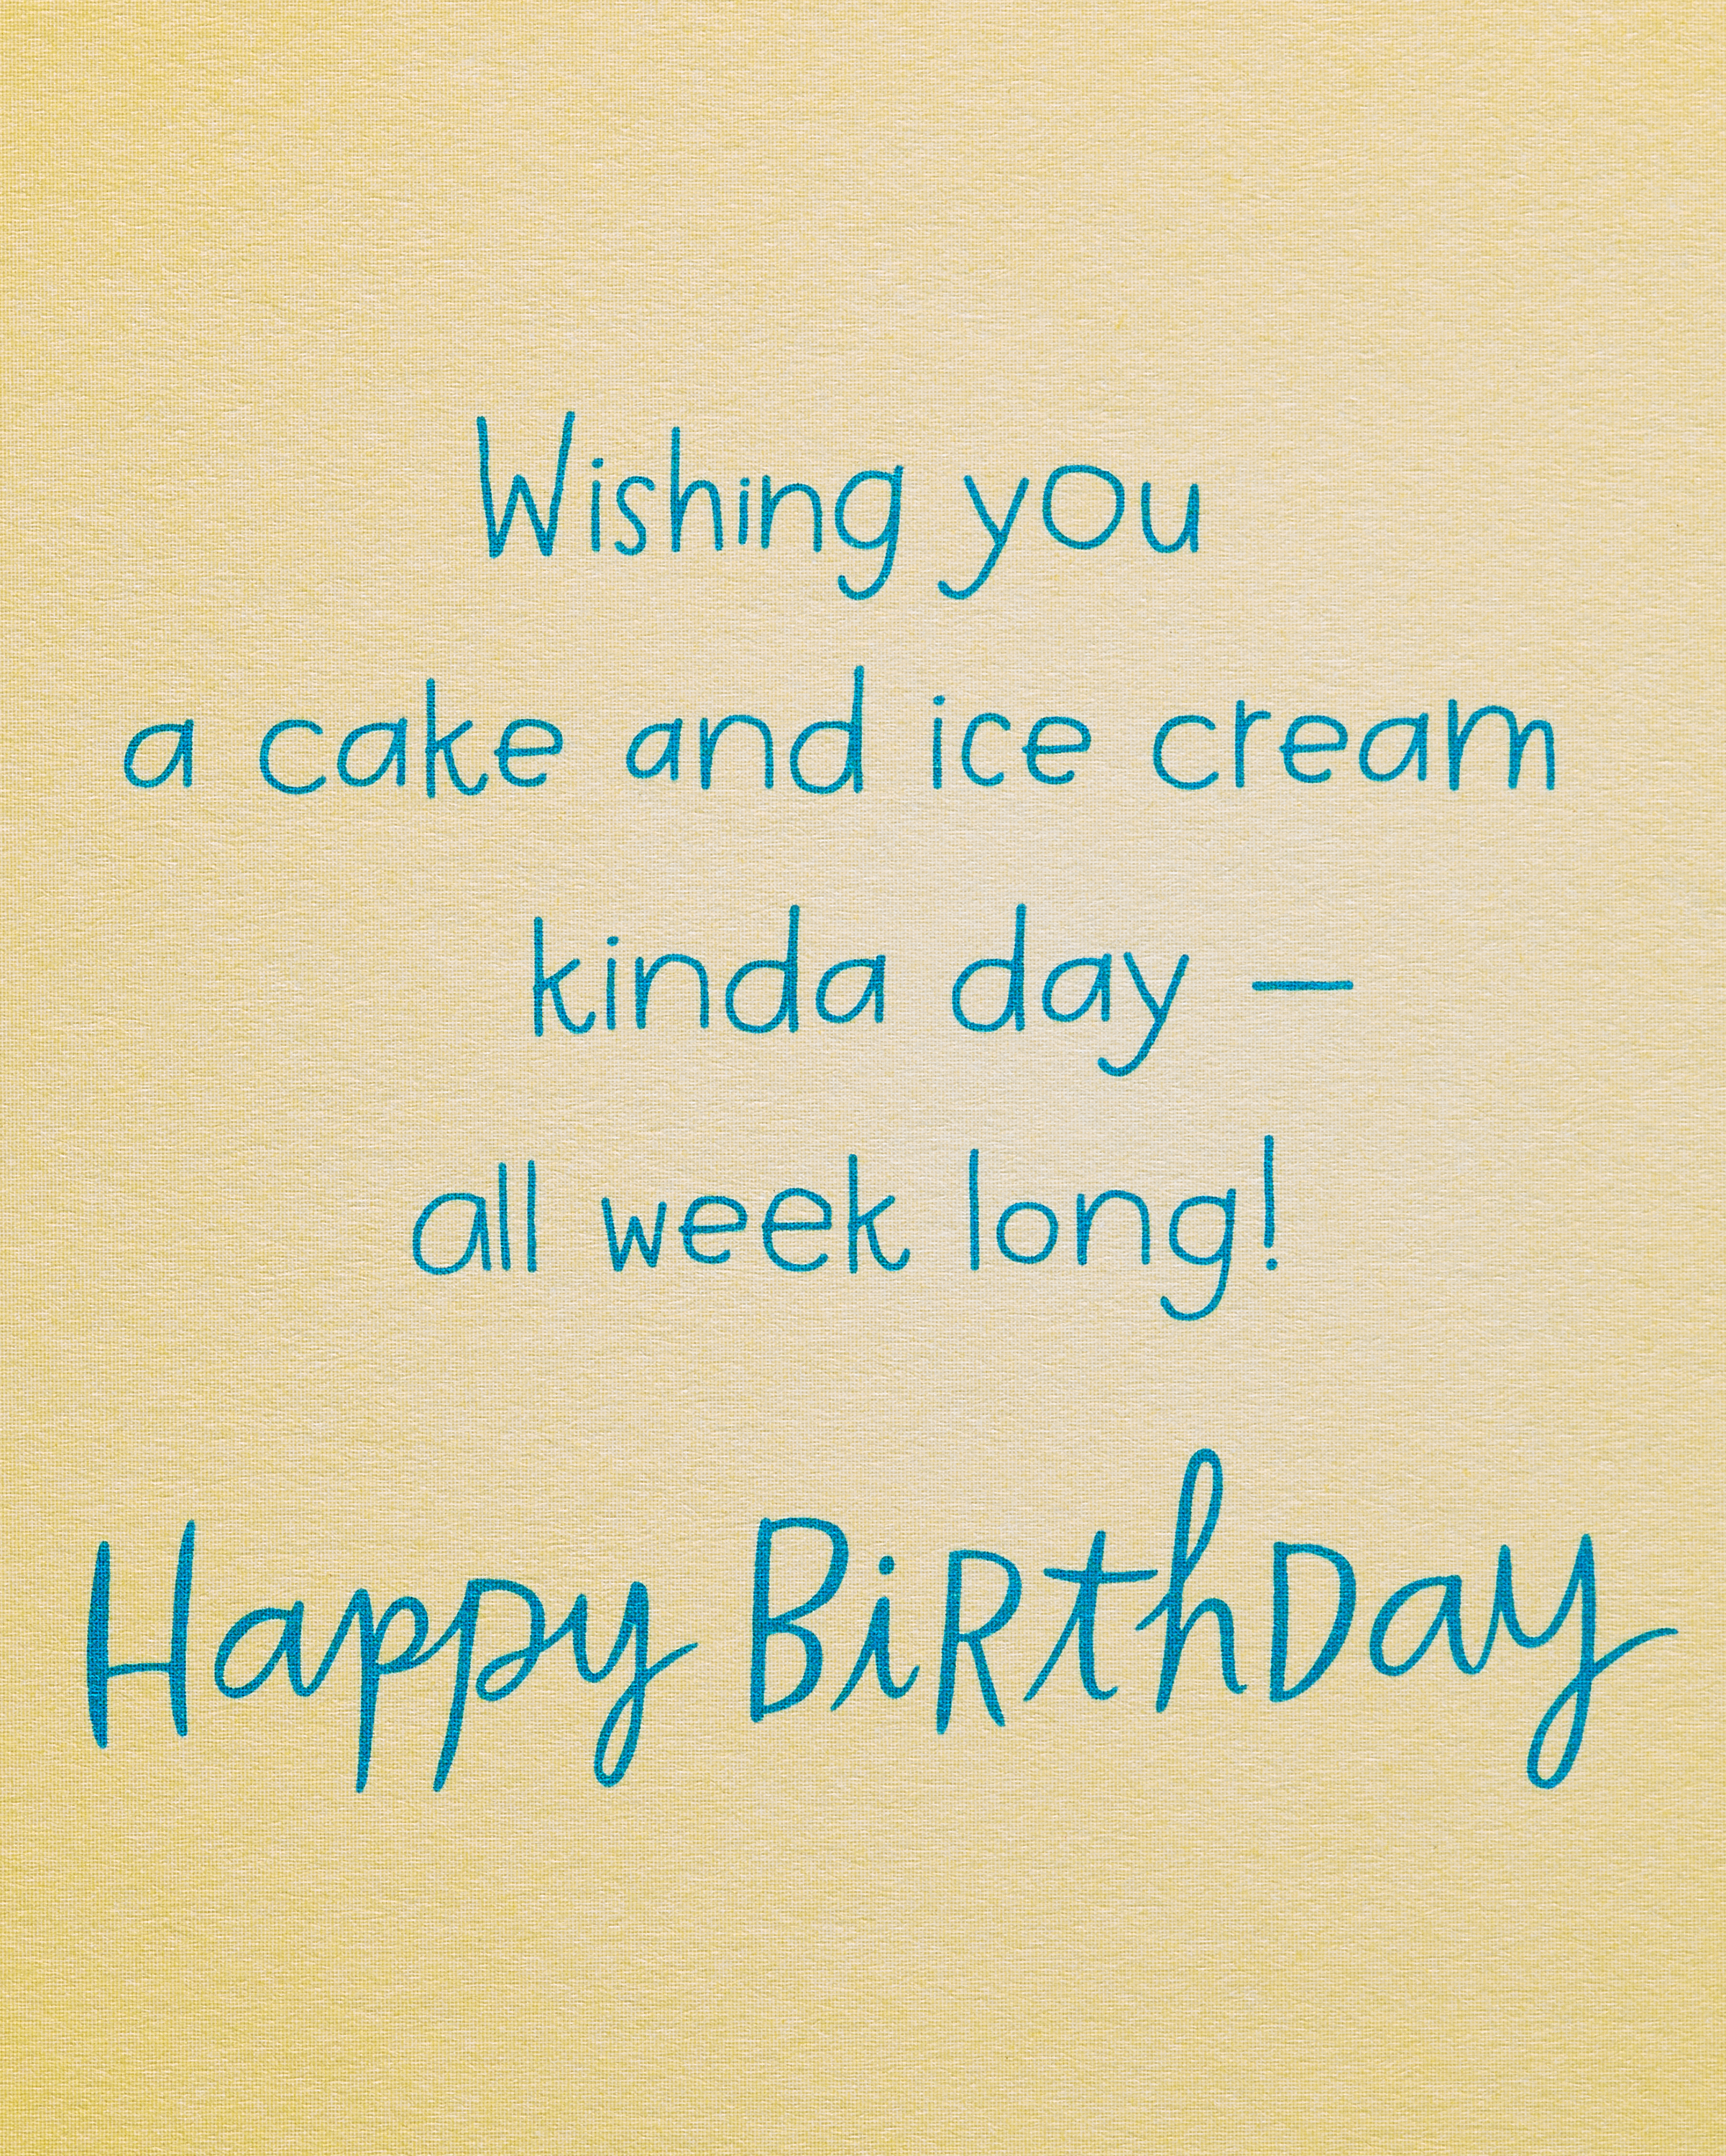 Wishing you
a cake and ice cream
kinda day —
all week long!
Happy BiRthDay